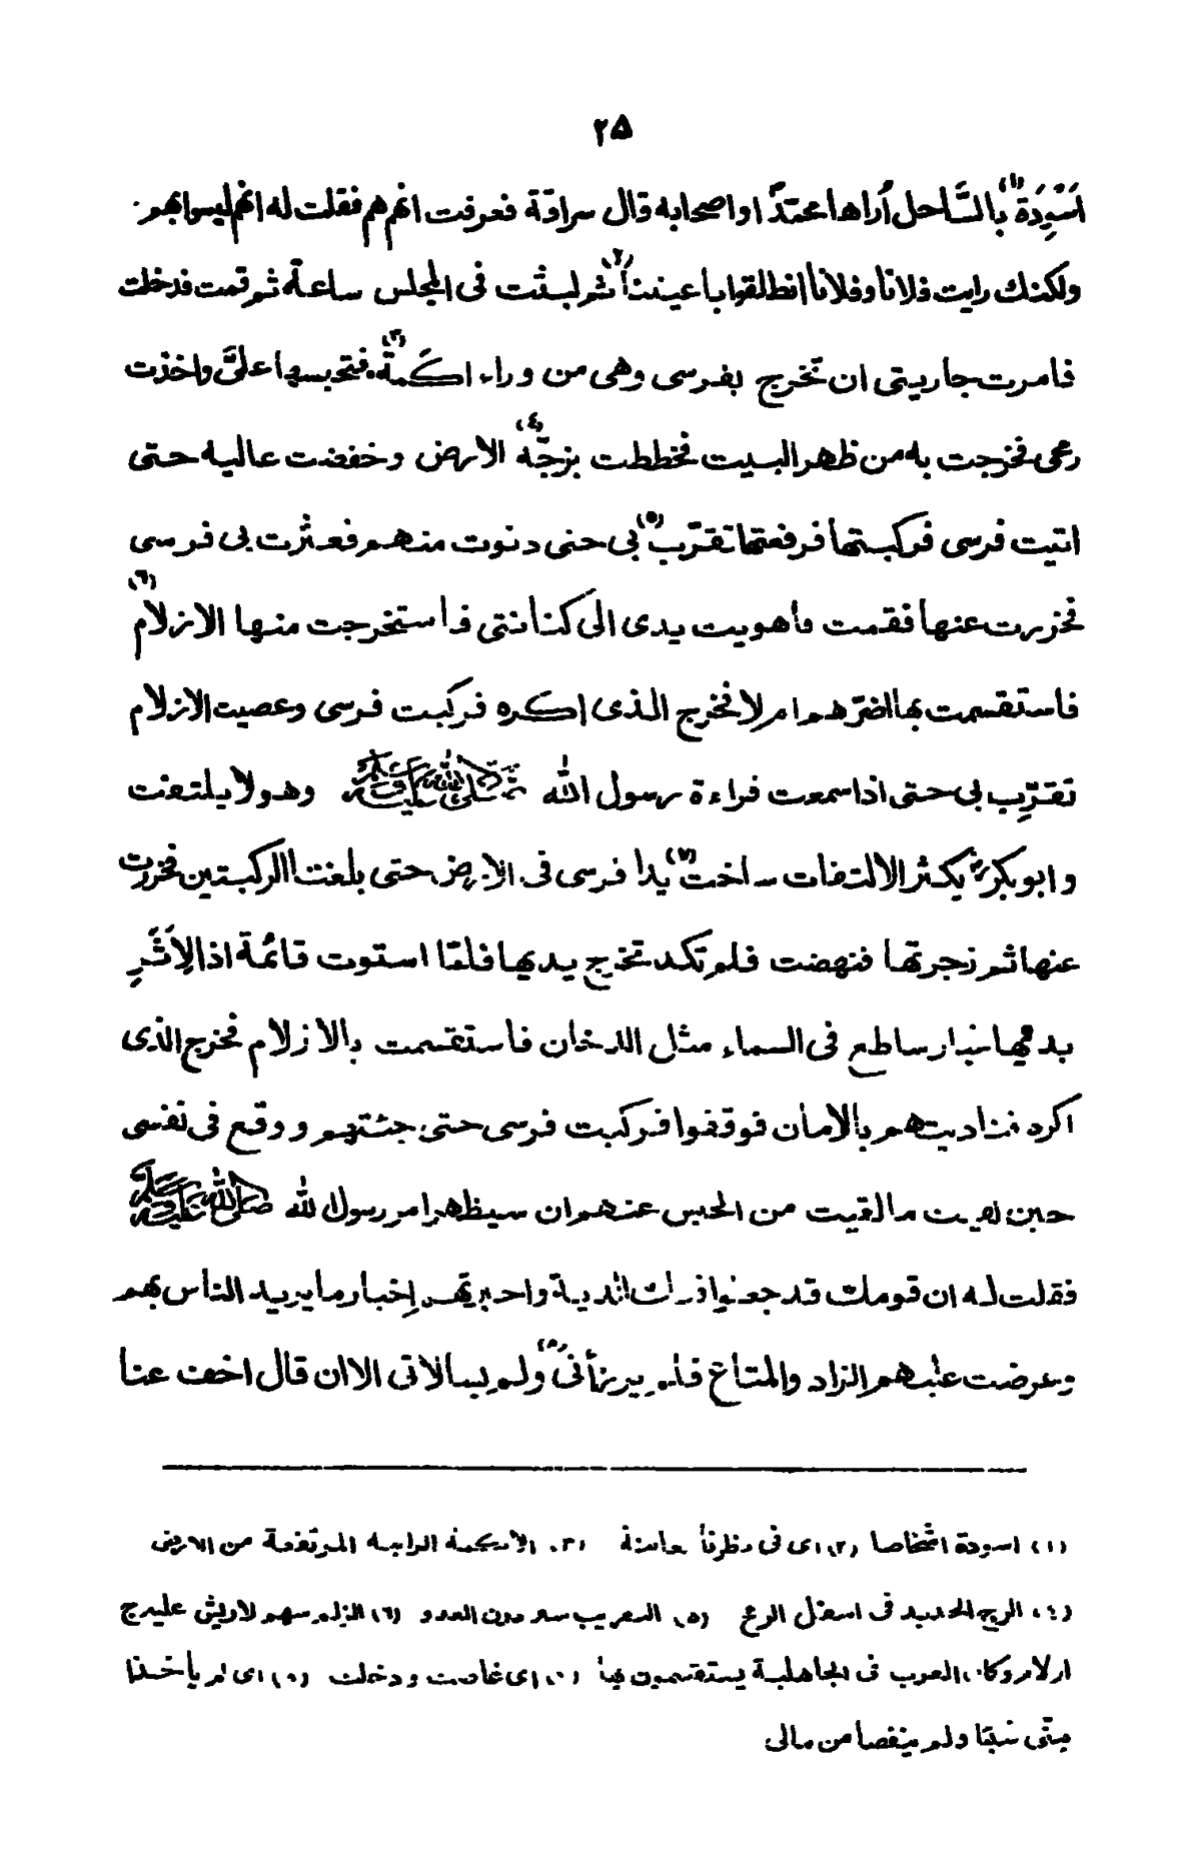 ۲۵
اَسْوِدَةً(۱) بالسَّاحل أُراها محمّدًا واصحابه قال سراقة فعرفت انهم هم فقلت له انهم ليسوا بهم
ولكنك رايت فلانًا وفلانًا انطلقوا باعيننا(۲) ثم لبثت فى المجلس ساعة ثم قمت فدخلت
فامرت جاريتى ان تخرج بفرسى وهى من وراء اكَمة(۳) فتحبسها علىَّ واخذت
رمحى فخرجت به من ظهر البيت فخططت بزجّه(٤) الارض وخفضت عاليه حتى
اتيت فرسى فركبتها فرفعتها تقرّب(۵) بى حتى دنوت منهم فعثرت بى فرسى
فخررت عنها فقمت فأهويت يدى الى كنانتى فاستخرجت منها الازلام(٦)
فاستقسمت بها اضرّهم ام لا فخرج الذى اكره فركبت فرسى وعصيت الازلام
تقرّب بى حتى اذا سمعت قراءة رسول الله صلى الله عليه وسلم وهو لا يلتفت
وابو بكر يكثر الالتفات ساخت(۷) يدا فرسى فى الارض حتى بلغتا الركبتين فخررت
عنها ثم زجرتها فنهضت فلم تكد تخرج يديها فلمّا استوت قائمة اذا لِاَثَرِ
يديها غبار ساطع فى السماء مثل الدخان فاستقسمت بالازلام فخرج الذى
اكره فناديتهم بالامان فوقفوا فركبت فرسى حتى جئتهم ووقع فى نفسى
حين لقيت ما لقيت من الحبس عنهم ان سيظهر امر رسول الله صلى الله عليه وسلم
فقلت له ان قومك قد جعلوا فيك الدية واخبرتهم اخبار ما يريد الناس بهم
وعرضت عليهم الزاد والمتاع فلم يرزأنى(۸) ولم يسألانى الا ان قال اخف عنا
(۱) اسودة اشخاصا (۲) اى فى نظرنا معاينة (۳) الاكمة الرابية المرتفعة من الارض
(٤) الزج الحديد فى اسفل الرمح (۵) التقريب دون العدو (٦) الزلم سهم لا ريش عليه ج
ازلام وكان العرب فى الجاهلية يستقسمون بها (۷) اى غاصت ودخلت (۸) اى لم يأخذا
منّى شيئا ولم ينقصا من مالى